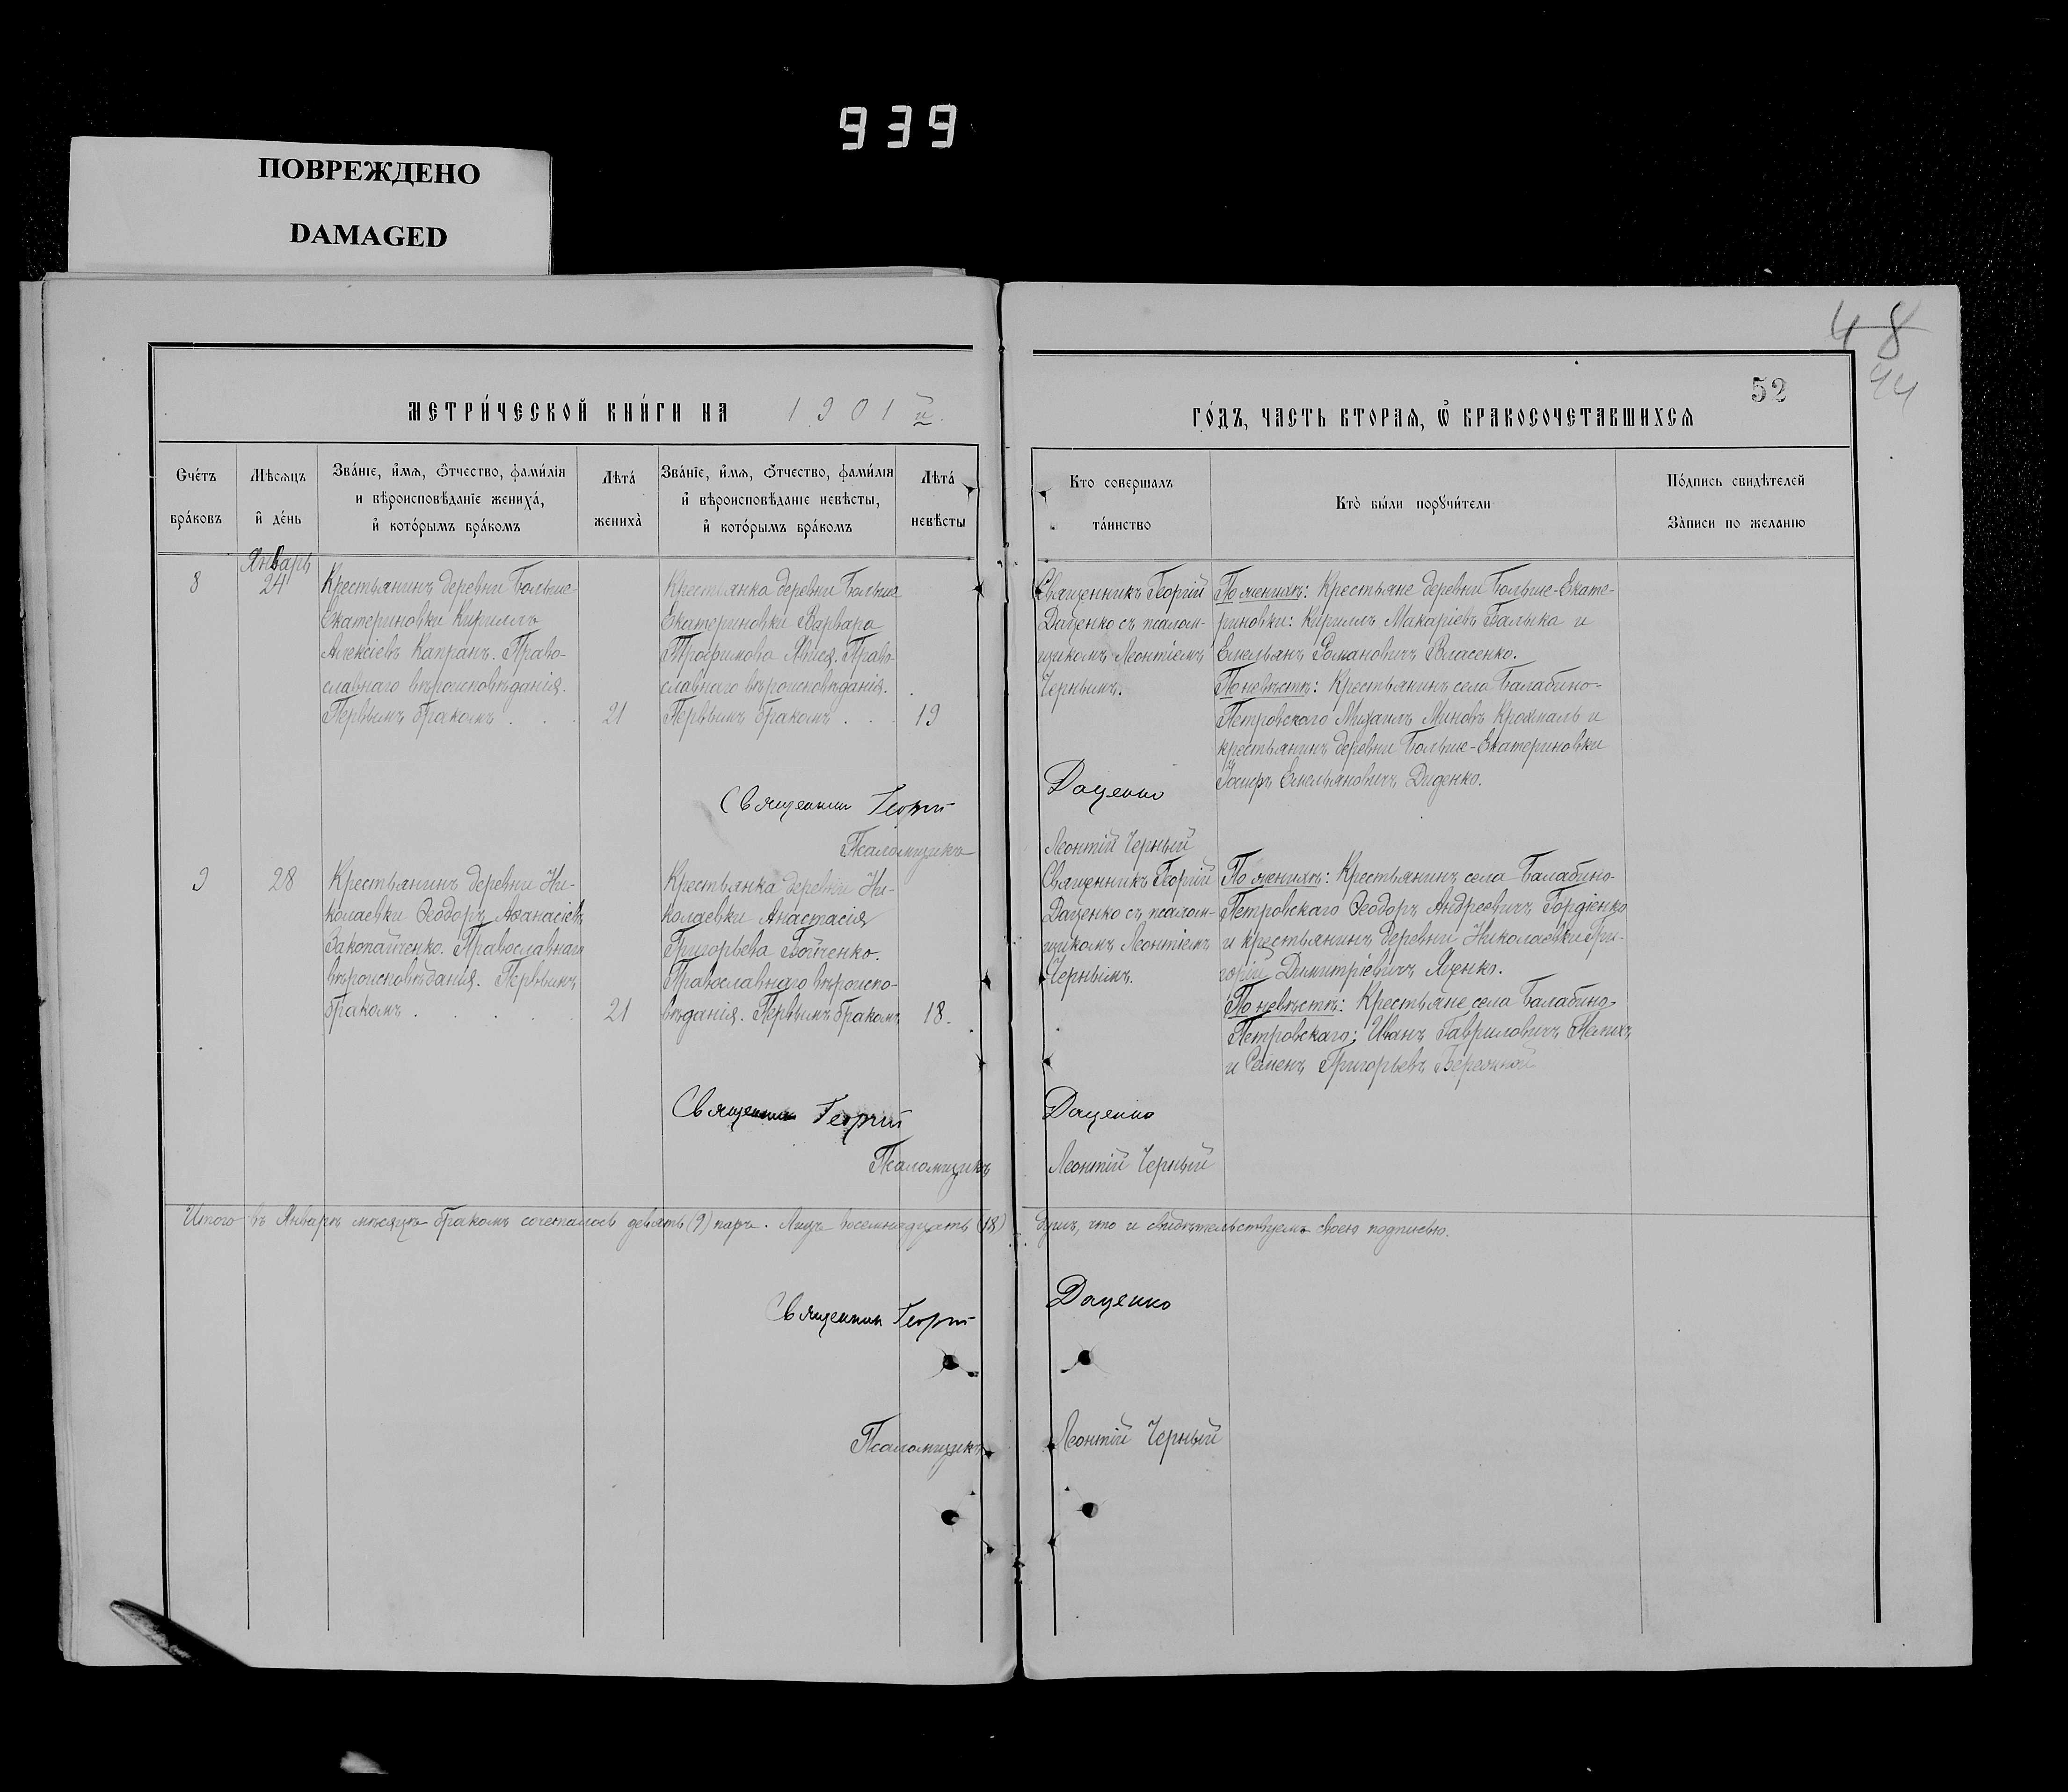 939
ПОВРЕЖДЕНО
DAMAGED
48
44
52
МЕТРИ́ЧЕСКОЙ КНИ́ГИ НА 1901 й.
ГО́ДЪ, ЧАСТЬ ВТОРАѦ, Ѿ БРАКОСОЧЕТАВШИХСѦ
Сче́тъ бра́ковъ
Мѣсѧцъ и҆ де́нь
Зва́нїе, и҆́мѧ, ѻ҆́тчество, фами́лїѧ
и вѣроисповѣ́данїе жениха́,
и҆ кото́рымъ бра́комъ
Лѣта́ жениха̀
Зва́нїе, и҆́мѧ, ѻ҆́тчество, фами́лїѧ
и҆ вѣроисповѣ́данїе невѣ́сты,
и҆ кото́рымъ бра́комъ
Лѣта́ невѣ́сты
Кто совершалъ та́инство
Кто̀ бы́ли порꙋчи́тели
По́дпись свидѣ́телей
За̀писи по желанїю
Январь
8
24
Крестьянинъ деревни Больше-
Екатериновки Кириллъ
Алексіевъ Капранъ. Право-
славнаго вѣроисповѣданія.
Первымъ бракомъ . . .
21
Крестьянка деревни Больше
Екатериновки Варвара
Трофимова. Право-
славнаго вѣроисповѣданія.
Первымъ бракомъ . . .
19
Священникъ Георгій
Даценко съ псалом-
щикомъ Леонтіемъ
Чернымъ.
По женихѣ: Крестьяне деревни Больше-Екате-
риновки: Кириллъ Макаріевъ Балыка и
Емельянъ Романовичъ Власенко.
По невѣстѣ: Крестьянинъ села Балабино-
Петровскаго Михаилъ Миновъ Крохмаль и
крестьянинъ деревни Больше-Екатериновки
Іосифъ Емельяновичъ Диденко.
Священникъ Георгій Даценко
Псаломщикъ Леонтій Черный
9
28
Крестьянинъ деревни Ни-
колаевки Ѳеодоръ Аѳанасіевъ
Закопайченко. Православнаго
вѣроисповѣданія. Первымъ
бракомъ . . . . .
21
Крестьянка деревни Ни-
колаевки Анастасія
Григорьева Бойченко.
Православнаго вѣроиспо-
вѣданія. Первымъ бракомъ
18.
Священникъ Георгій
Даценко съ псалом-
щикомъ Леонтіемъ
Чернымъ.
По женихѣ: Крестьянинъ села Балабино-
Петровскаго Ѳеодоръ Андреевичъ Гордіенко
и крестьянинъ деревни Николаевки Гри-
горій Димитріевичъ Яценко.
По невѣстѣ: Крестьяне села Балабино-
Петровскаго: Иванъ Гавриловичъ Пелихъ
и Семенъ Григорьевъ Бережной
Священникъ Георгій Даценко
Псаломщикъ Леонтій Черный
Итого въ Январѣ мѣсяцѣ бракомъ сочеталось девять (9) паръ. Лицъ восемнадцать (18) душъ, что и свидѣтельствуемъ своею подписью.
Священникъ Георгій Даценко
Псаломщикъ Леонтій Черный